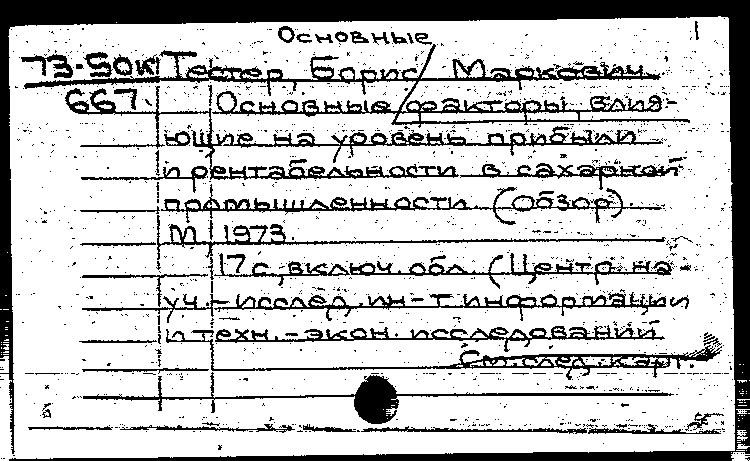 Основные 1
73-50К Тестер, Борис Маркович.
667. Основные факторы, влия-
ющие на уровень прибыли
и рентабельности в сахарной
промышленности. (Обзор).
М. 1973.
17 с., включ. обл. (Центр. на-
уч.-исслед. ин-т информации
и техн.-экон. исследований
См. след. карт.